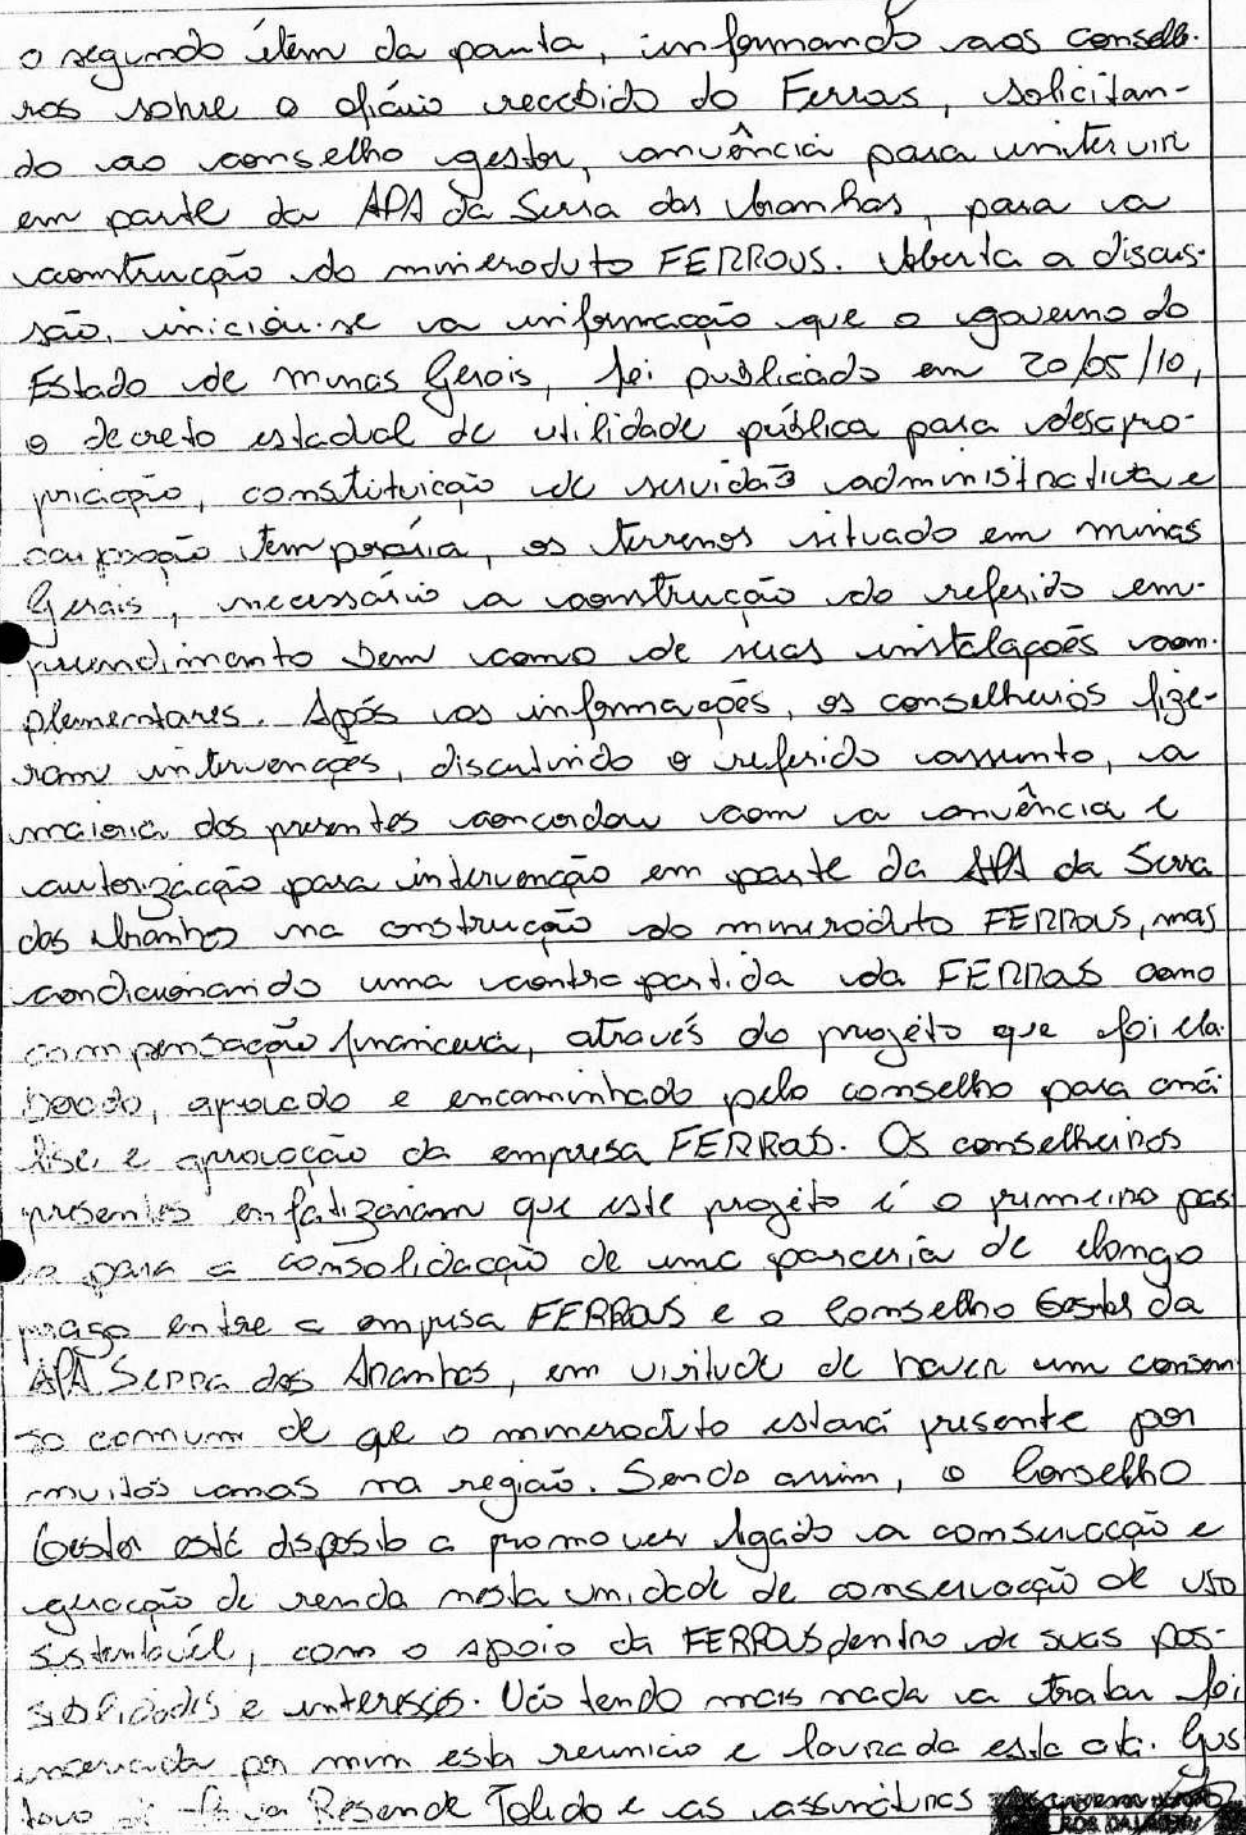 o segundo ítem da pauta, informando aos conselh.
ros sobre o ofício recebido do Ferras, solicitan-
do ao conselho gestor, anuência para intervir
em parte da APA da Serra das Aranhas, para a
construcção do mineroduto FERROUS. Aberta a discus-
são, iniciou-se a informacção que o governo do
Estado de Minas Gerais, foi publicado em 20/05/10,
o decreto estadual de utilidade pública para desapro-
priacção, constituicção de servidão administrativa e
ocupação temporária, os terrenos situado em minas
Gerais, necessário a construcção do referido em-
preendimento bem como de suas instalações com-
plementares. Após as informações, os conselheiros fize-
ram intervencções, discutindo o referido assunto, a
maioria dos presentes concordou com a anuência e
autorizacção para intervencção em parte da APA da Serra
das Aranhas na construcção do mineroduto FERROUS, mas
condicionando uma contra partida da FERRAS como
compensacção financeira, através do projéto que foi ela-
borado, aprovado e encaminhado pelo conselho para aná
lise, e aprovacção da empresa FERRAS. Os conselheiros
presentes enfatizaram que este projéto é o primeiro pas
so para a consolidacção de uma parceria de longo
prazo entre a empresa FERROUS e o Conselho Gestor da
APA Serra das Aranhas, em virtude de haver um consen
so comum de que o mineroduto estará presente por
muitos anos na região. Sendo assim, o Conselho
Gestor está disposto a promover ligado a conservacção e
geracção de renda nesta unidade de conservacção de uso
sustentável, com o apoio da FERROUS dentro de suas pos-
sibilidades e interesses. Não tendo mais nada a tratar foi
encerrada por mim esta reunião e lavrada esta ata. Gus
tavo de Paiva Resende Toledo e as assinaturas